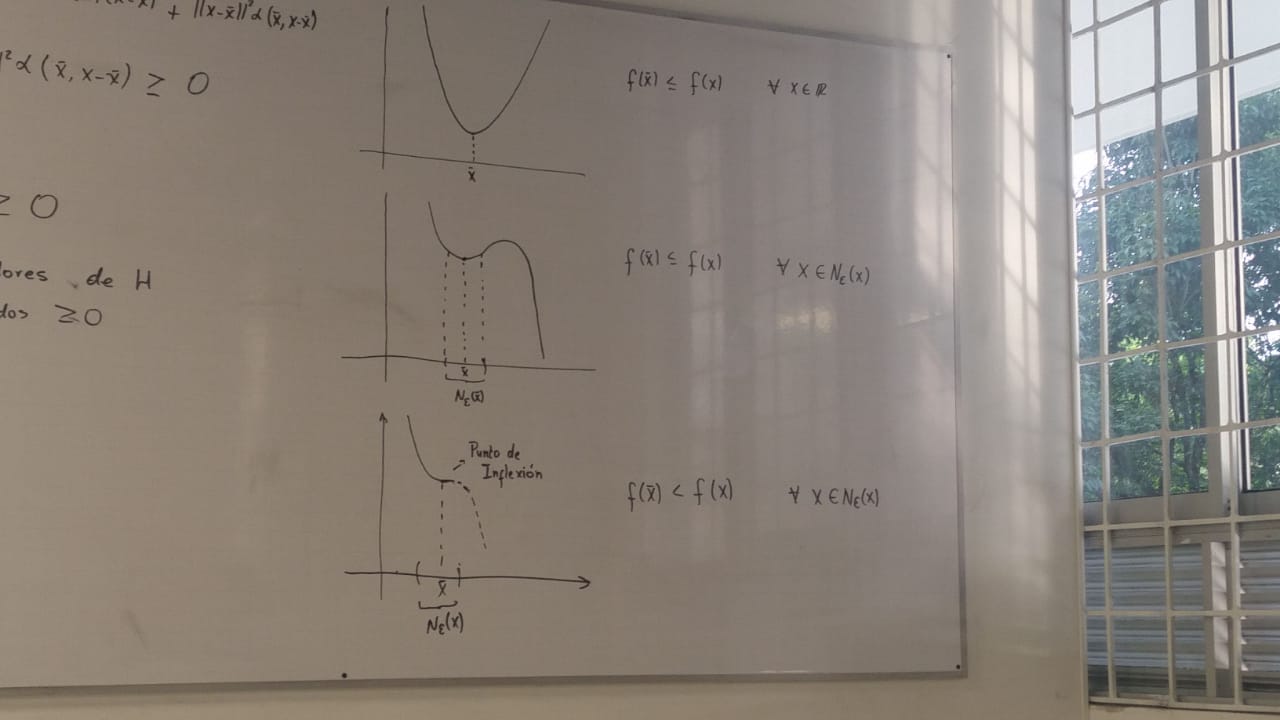 + ||x-x̄||² α (x̄, x-x̄)
² α (x̄, x-x̄) ≥ 0
≥ 0
lores de H
dos ≥0
x̄
f(x̄) ≤ f(x) ∀ x ∈ ℝ
x̄
Nε(x̄)
f(x̄) ≤ f(x) ∀ x ∈ Nε(x)
Punto de
Inflexión
x̄
Nε(x)
f(x̄) < f(x) ∀ x ∈ Nε(x)